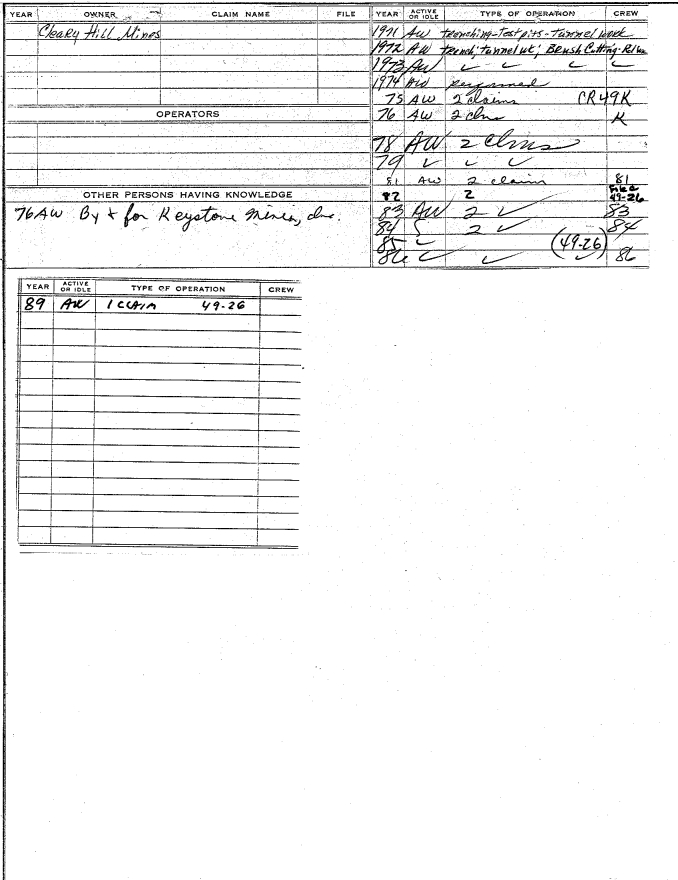 YEAR OWNER CLAIM NAME FILE
Cleary Hill Mines
OPERATORS
OTHER PERSONS HAVING KNOWLEDGE
76 AW By & for Keystone Mines, Inc.
YEAR ACTIVE OR IDLE TYPE OF OPERATION CREW
1971 AW trenching-Test pits-tunnel work
1972 AW trench, tunnel wk, Brush Cutting
1973 AW ✓ ✓ ✓ ✓
1974 AW performed
75 AW 2 claims CR49K
76 AW 2 clms K
78 AW 2 Clms
79 ✓ ✓ ✓
81 AW 2 claim 81
82 2 File @ 49-26
83 AW 2 ✓ 83
84 2 ✓ 84
85 ✓ (49-26)
86 ✓ ✓ ✓ 86
YEAR ACTIVE OR IDLE TYPE OF OPERATION CREW
89 AW 1 CLAIM 49-26